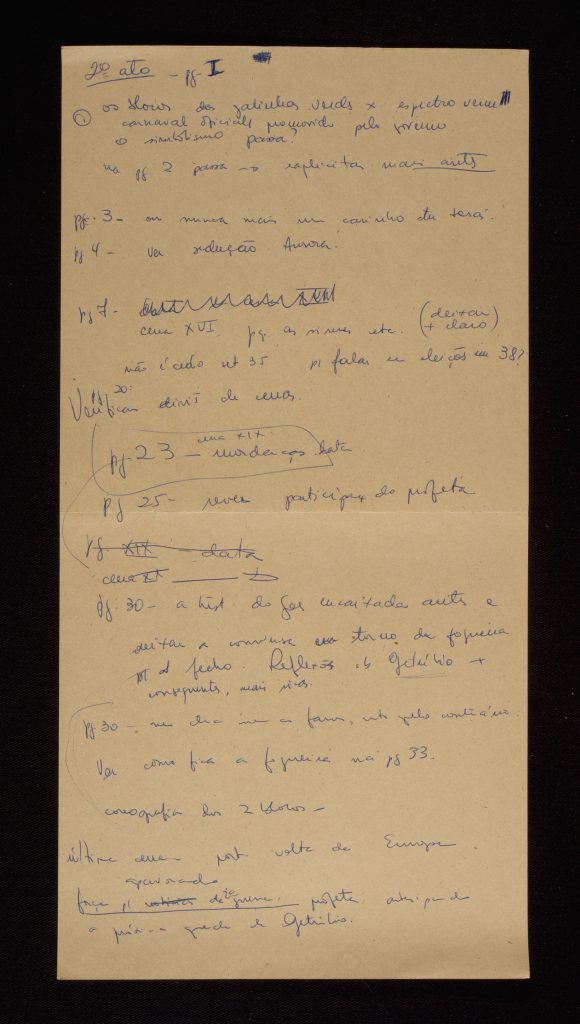 2º ato - pg. I
① os blocos dos galinhas verds x espectro verm
carnaval oficial promovido pelo governo
o simbolismo passa?
na pg 2 passa → explicitar mais ants
pg. 3 - ou nunca mais um carinho tu terás.
pg 4 - ver redução Aurora.
pg 7 -
cena XVI pg as etc. (deixar + claro)
não é cedo set 35 p/ falar em eleiçõs em 38?
pg 20:
Verificar divis de cenas.
cena XIX
pg. 23 - mudanças data
pg 25 - rever particip do profeta
pg. XIX - data
cena XI
pg. 30 - a hist. do encaixada ants e
deixar a conversa em torno da fogueira
p/ o fecho. Reflexõs de Getúlio +
consequents, mais
pg 30 - no dia as favas, pelo contrário.
Ver como fica a fogueira na pg 33.
coreografia dos 2 blocos -
última cena - port volta da Europa
apavorado
força p/ de guerra. profeta antecipando
a próxima queda de Getúlio.